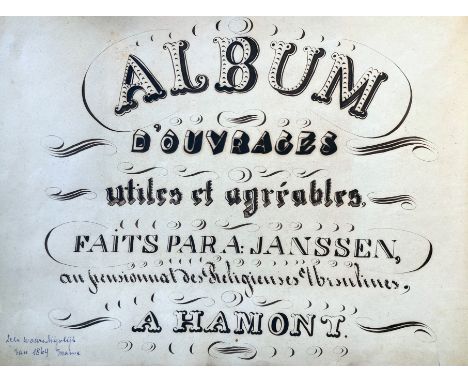 ALBUM
D'OUVRAGES
utiles et agréables,
FAITS PAR A: JANSSEN,
au pensionnat des Religieuses Ursulines,
A HAMONT.
van 1869